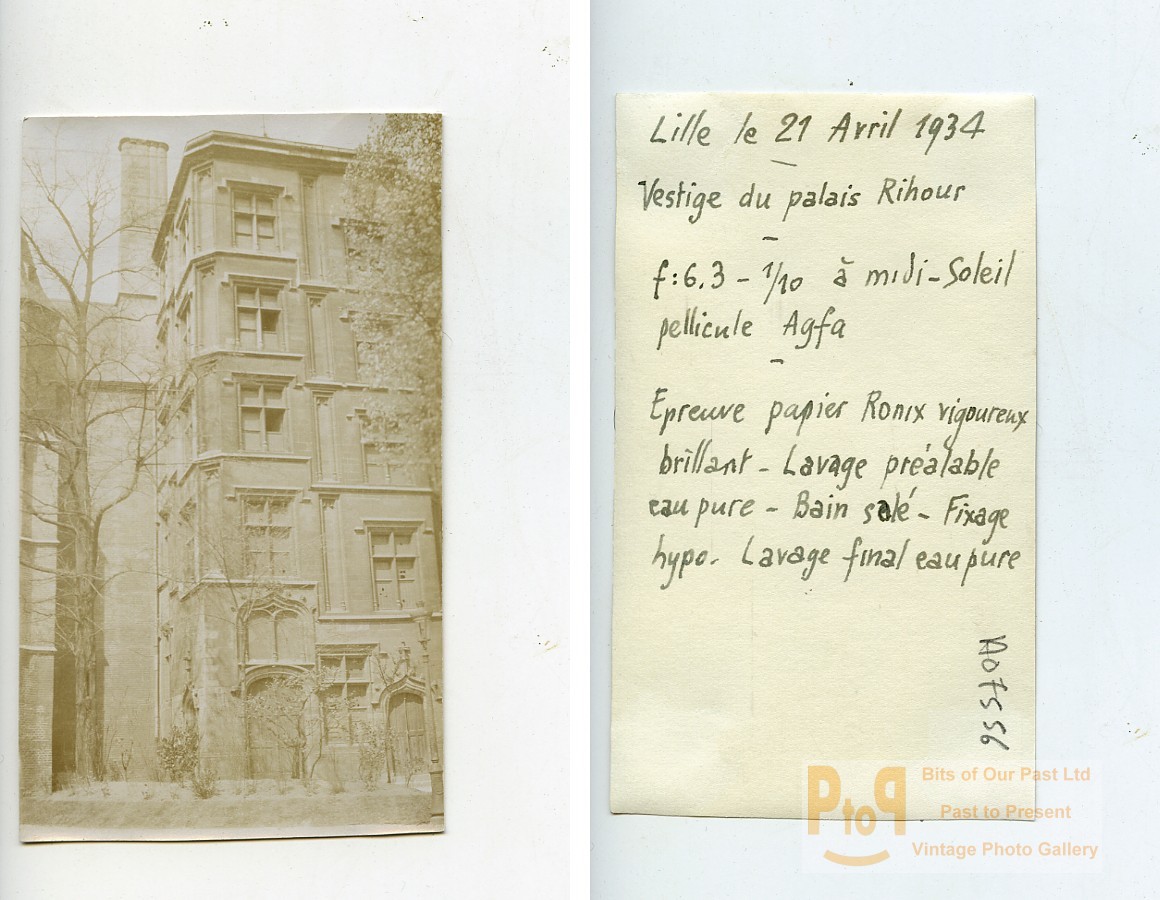 Lille le 21 Avril 1934
Vestige du palais Rihour
f:6.3 - 1/10 à midi - Soleil
pellicule Agfa
Epreuve papier Ronix vigoureux
brillant - Lavage préalable
eau pure - Bain salé - Fixage
hypo. Lavage final eau pure
PtoP
Bits of Our Past Ltd
Past to Present
Vintage Photo Gallery